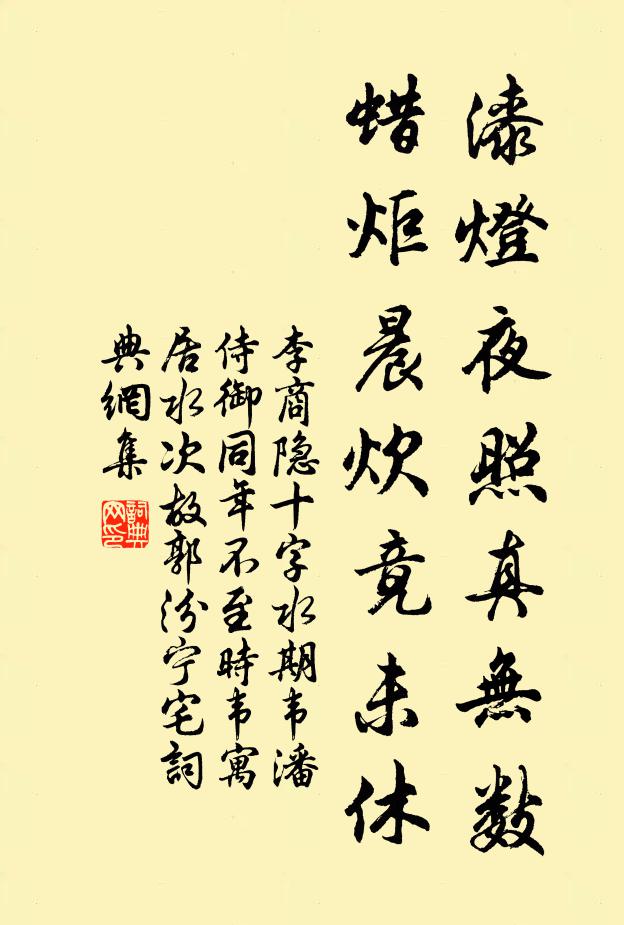 漆燈夜照真無數
蜡炬晨炊竟未休
李商隐十字水期韦潘
侍御同年不至時韦寓
居水次故郭汾宁宅詞
典網集
詞典网印